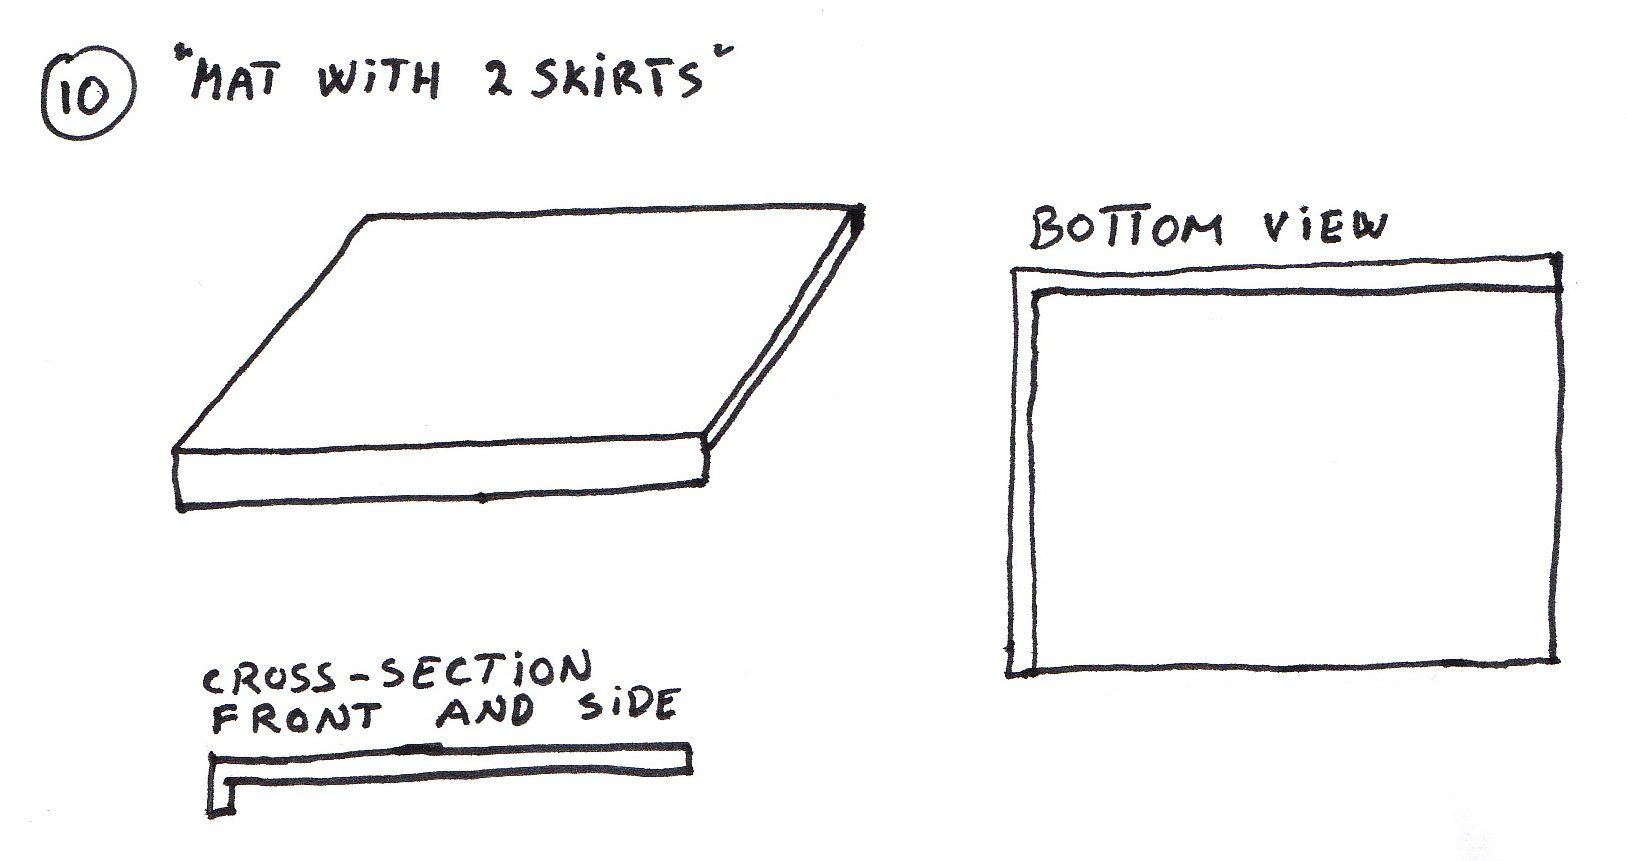 10 "MAT WiTH 2 SKiRTS"
BOTTOM ViEW
CROSS-SECTiON
FRONT AND SiDE